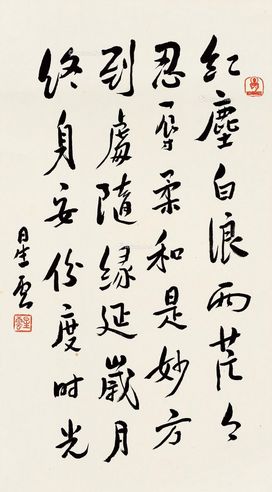 紅塵白浪两茫々
忍辱柔和是妙方
到處隨緣延歲月
終身安份度时光
星雲